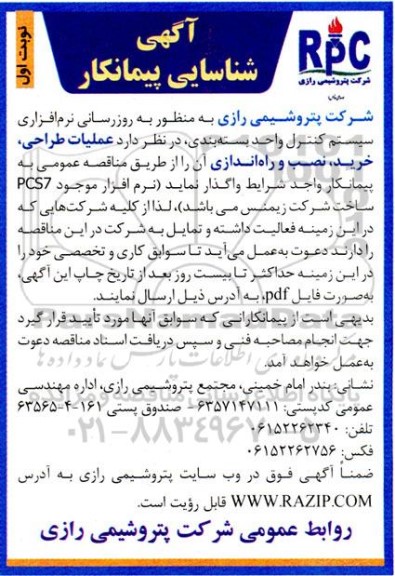 نوبت اول
آگهی
شناسایی پیمانکار
RPC
شرکت پتروشیمی رازی
شرکت پتروشیمی رازی به منظور به روزرسانی نرم‌افزاری
سیستم کنترل واحد بسته‌بندی، در نظر دارد عملیات طراحی،
خرید، نصب و راه‌اندازی آن را از طریق مناقصه عمومی به
پیمانکار واجد شرایط واگذار نماید (نرم افزار موجود PCS7
ساخت شرکت زیمنس می باشد)، لذا از کلیه شرکت‌هایی که
در این زمینه فعالیت داشته و تمایل به شرکت در این مناقصه
را دارند دعوت به‌عمل می‌آید تا سوابق کاری و تخصصی خود را
در این زمینه حداکثر تا بیست روز بعد از تاریخ چاپ این آگهی،
به‌صورت فایل pdf، به آدرس ذیل ارسال نمایند.
بدیهی است از پیمانکارانی که سوابق آنها مورد تأیید قرار گیرد
جهت انجام مصاحبه فنی و سپس دریافت اسناد مناقصه دعوت
به‌عمل خواهد آمد.
نشانی: بندر امام خمینی، مجتمع پتروشیمی رازی، اداره مهندسی
عمومی کدپستی: ۶۳۵۷۱۴۷۱۱۱ - صندوق پستی ۱۶۱-۴-۶۳۵۶۵
تلفن: ۰۶۱۵۲۲۶۲۳۴۰
فکس: ۰۶۱۵۲۲۶۲۷۵۶
ضمناً آگهی فوق در وب سایت پتروشیمی رازی به آدرس
WWW.RAZIP.COM قابل رؤیت است.
روابط عمومی شرکت پتروشیمی رازی
ParsNamadData
پایگاه اطلاع رسانی مناقصه و مزایده
۰۲۱-۸۸۳۴۹۶۷۰-۵